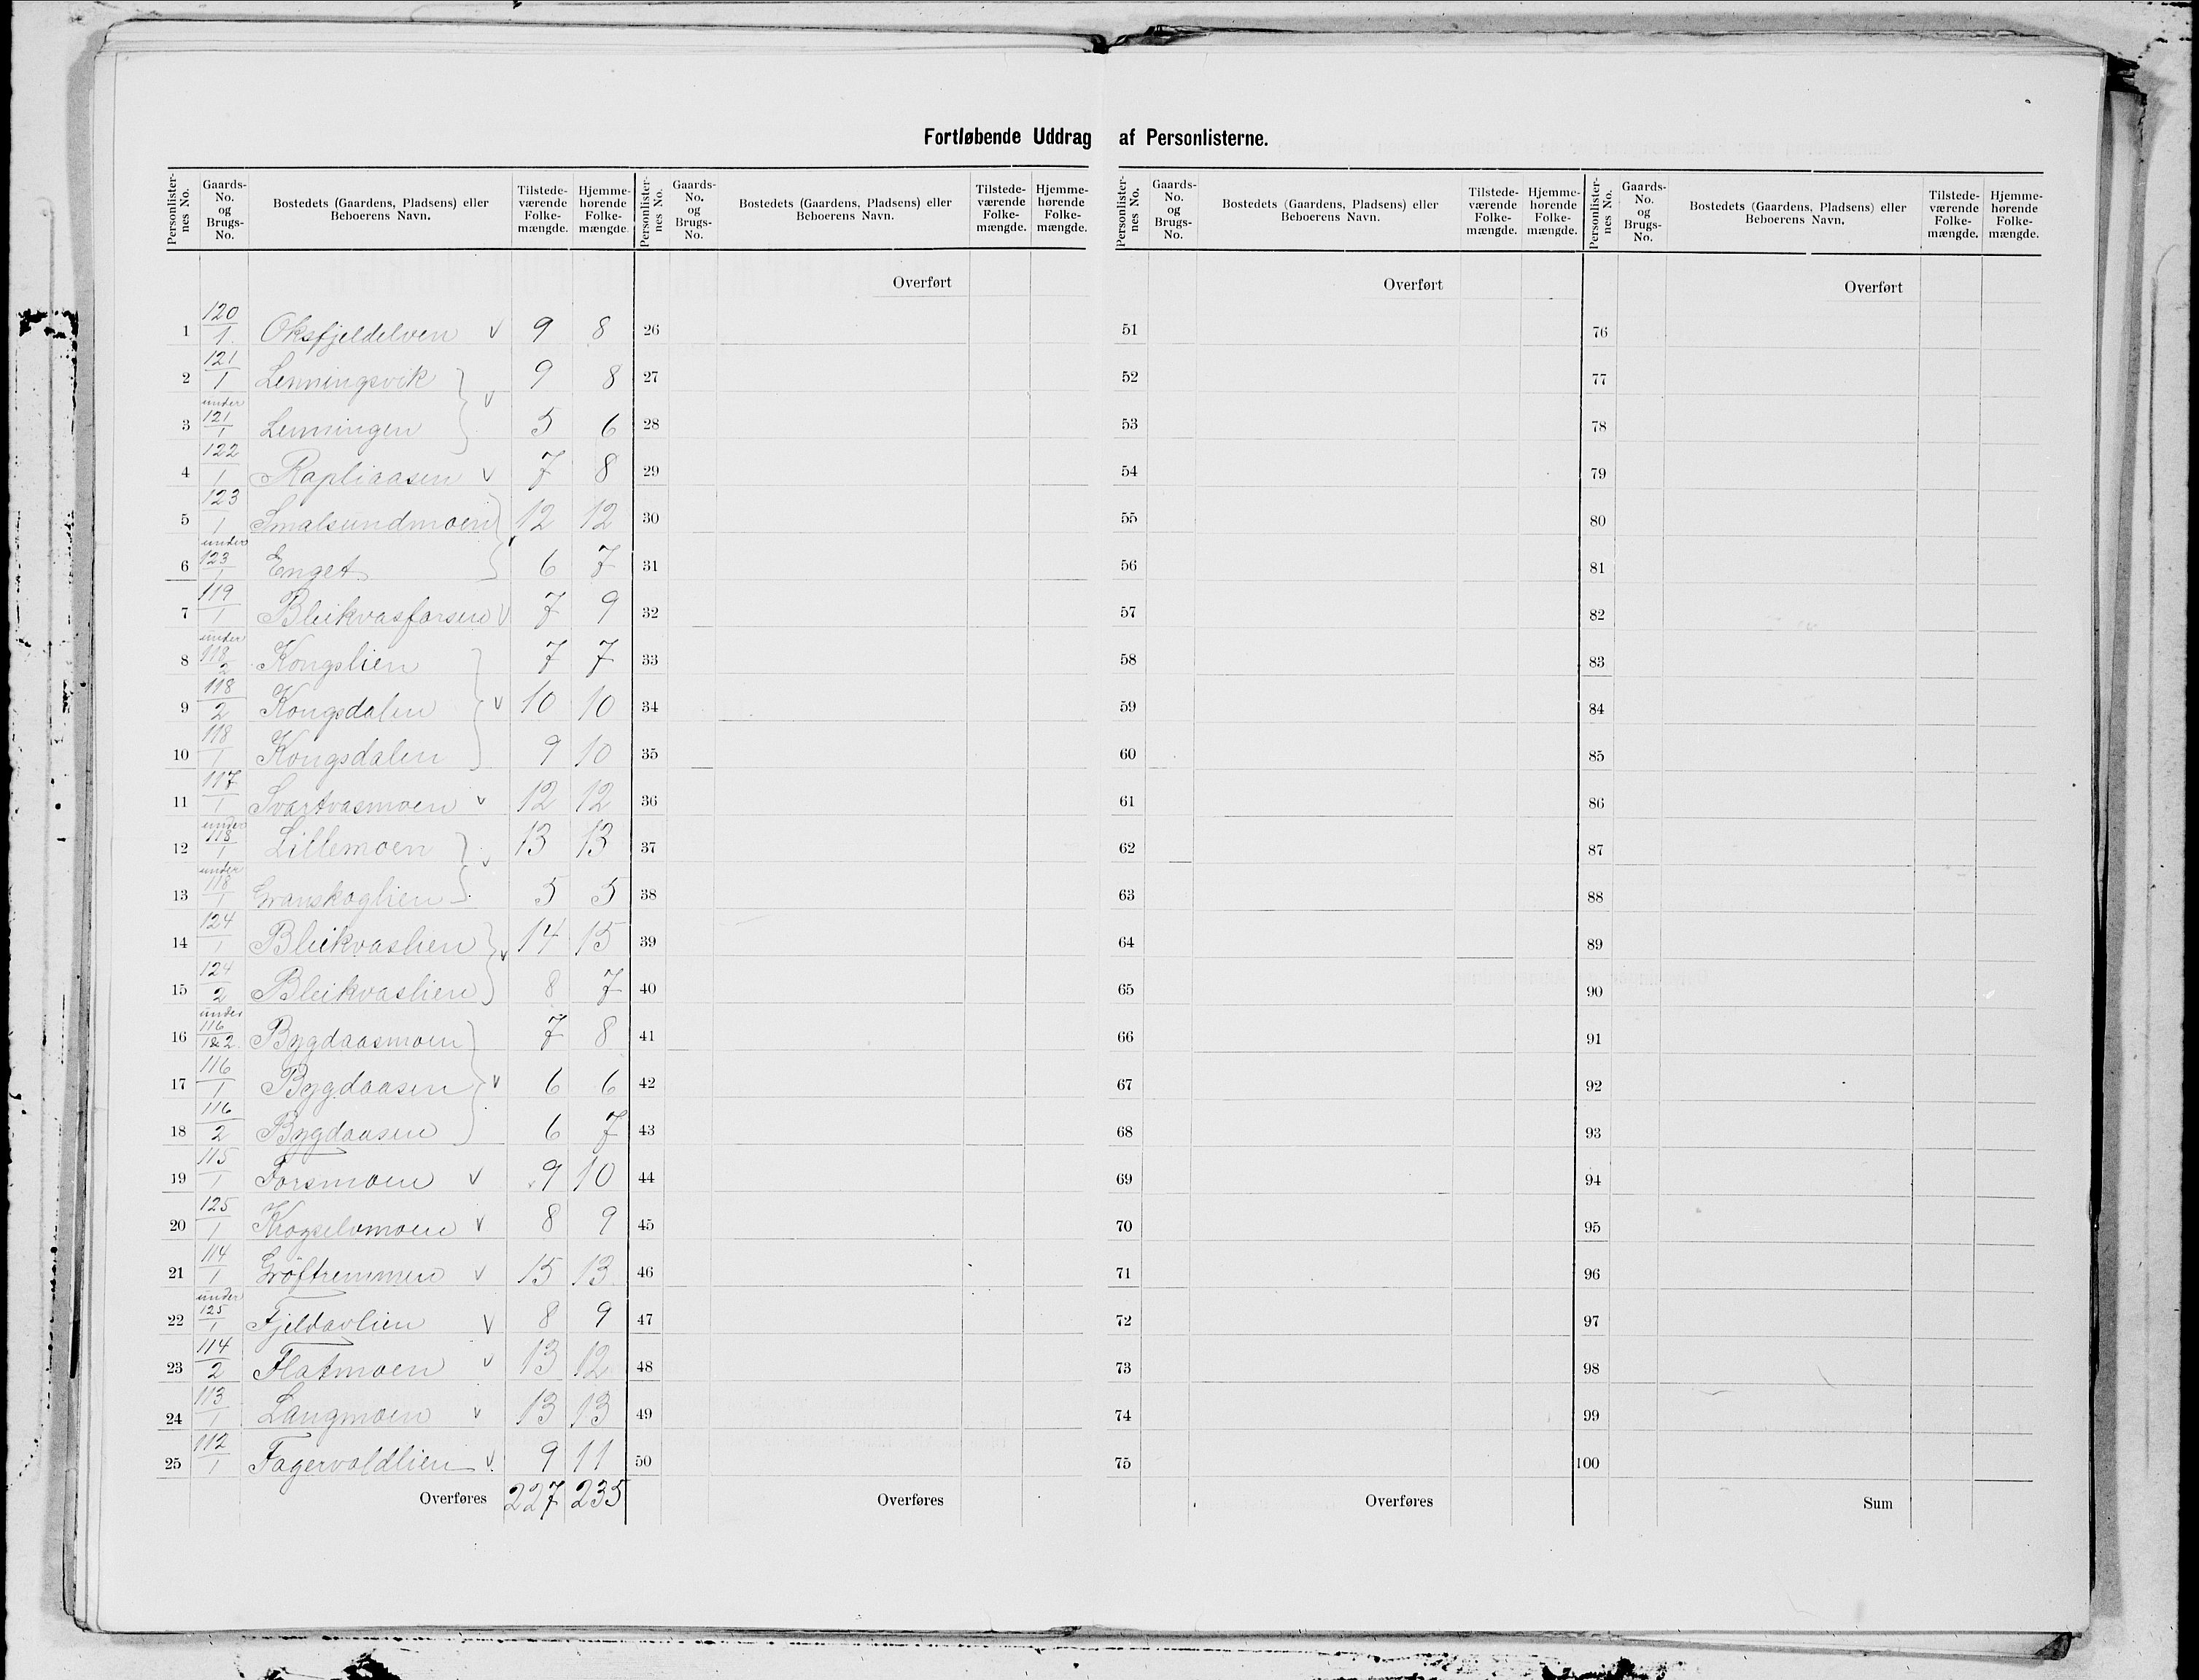 Fortløbende Uddrag af Personlisterne.
Personlister-nes No. | Gaards-No. og Brugs-No. | Bostedets (Gaardens, Pladsens) eller Beboerens Navn. | Tilstede-værende Folke-mængde. | Hjemme-hørende Folke-mængde.
1 | 120/1 | Oksfjeldelven v | 9 | 8
2 | 121/1 | Lenningsvik | 9 | 8
3 | under 121/1 | Lenningen v | 5 | 6
4 | 122/1 | Rapliaasen v | 7 | 8
5 | 123/1 | Smalsundmoen | 12 | 12
6 | under 123/1 | Enget v | 6 | 7
7 | 119/1 | Bleikvasforsen v | 7 | 9
8 | under 118/2 | Kongslien | 7 | 7
9 | 118/2 | Kongsdalen v | 10 | 10
10 | 118/1 | Kongsdalen | 9 | 10
11 | 117/1 | Svartvasmoen v | 12 | 12
12 | under 118/1 | Lillemoen v | 13 | 13
13 | under 118/1 | Granskoglien | 5 | 5
14 | 124/1 | Bleikvaslien v | 14 | 15
15 | 124/2 | Bleikvaslien | 8 | 7
16 | under 116/1&2 | Bygdaasmoen | 7 | 8
17 | 116/1 | Bygdaasen v | 6 | 6
18 | 116/2 | Bygdaasen | 6 | 7
19 | 115/1 | Forsmoen v | 9 | 10
20 | 125/1 | Krogselvmoen v | 8 | 9
21 | 114/1 | Grøftremmen v | 15 | 13
22 | under 125/1 | Fjeldavlien v | 8 | 9
23 | 114/2 | Flatmoen v | 13 | 12
24 | 113/1 | Langmoen v | 13 | 13
25 | 112/1 | Fagervoldlien v | 9 | 11
Overføres | 227 | 235
Personlister-nes No. | Gaards-No. og Brugs-No. | Bostedets (Gaardens, Pladsens) eller Beboerens Navn. | Tilstede-værende Folke-mængde. | Hjemme-hørende Folke-mængde.
Overført
26
27
28
29
30
31
32
33
34
35
36
37
38
39
40
41
42
43
44
45
46
47
48
49
50
Overføres
Personlister-nes No. | Gaards-No. og Brugs-No. | Bostedets (Gaardens, Pladsens) eller Beboerens Navn. | Tilstede-værende Folke-mængde. | Hjemme-hørende Folke-mængde.
Overført
51
52
53
54
55
56
57
58
59
60
61
62
63
64
65
66
67
68
69
70
71
72
73
74
75
Overføres
Personlister-nes No. | Gaards-No. og Brugs-No. | Bostedets (Gaardens, Pladsens) eller Beboerens Navn. | Tilstede-værende Folke-mængde. | Hjemme-hørende Folke-mængde.
Overført
76
77
78
79
80
81
82
83
84
85
86
87
88
89
90
91
92
93
94
95
96
97
98
99
100
Sum